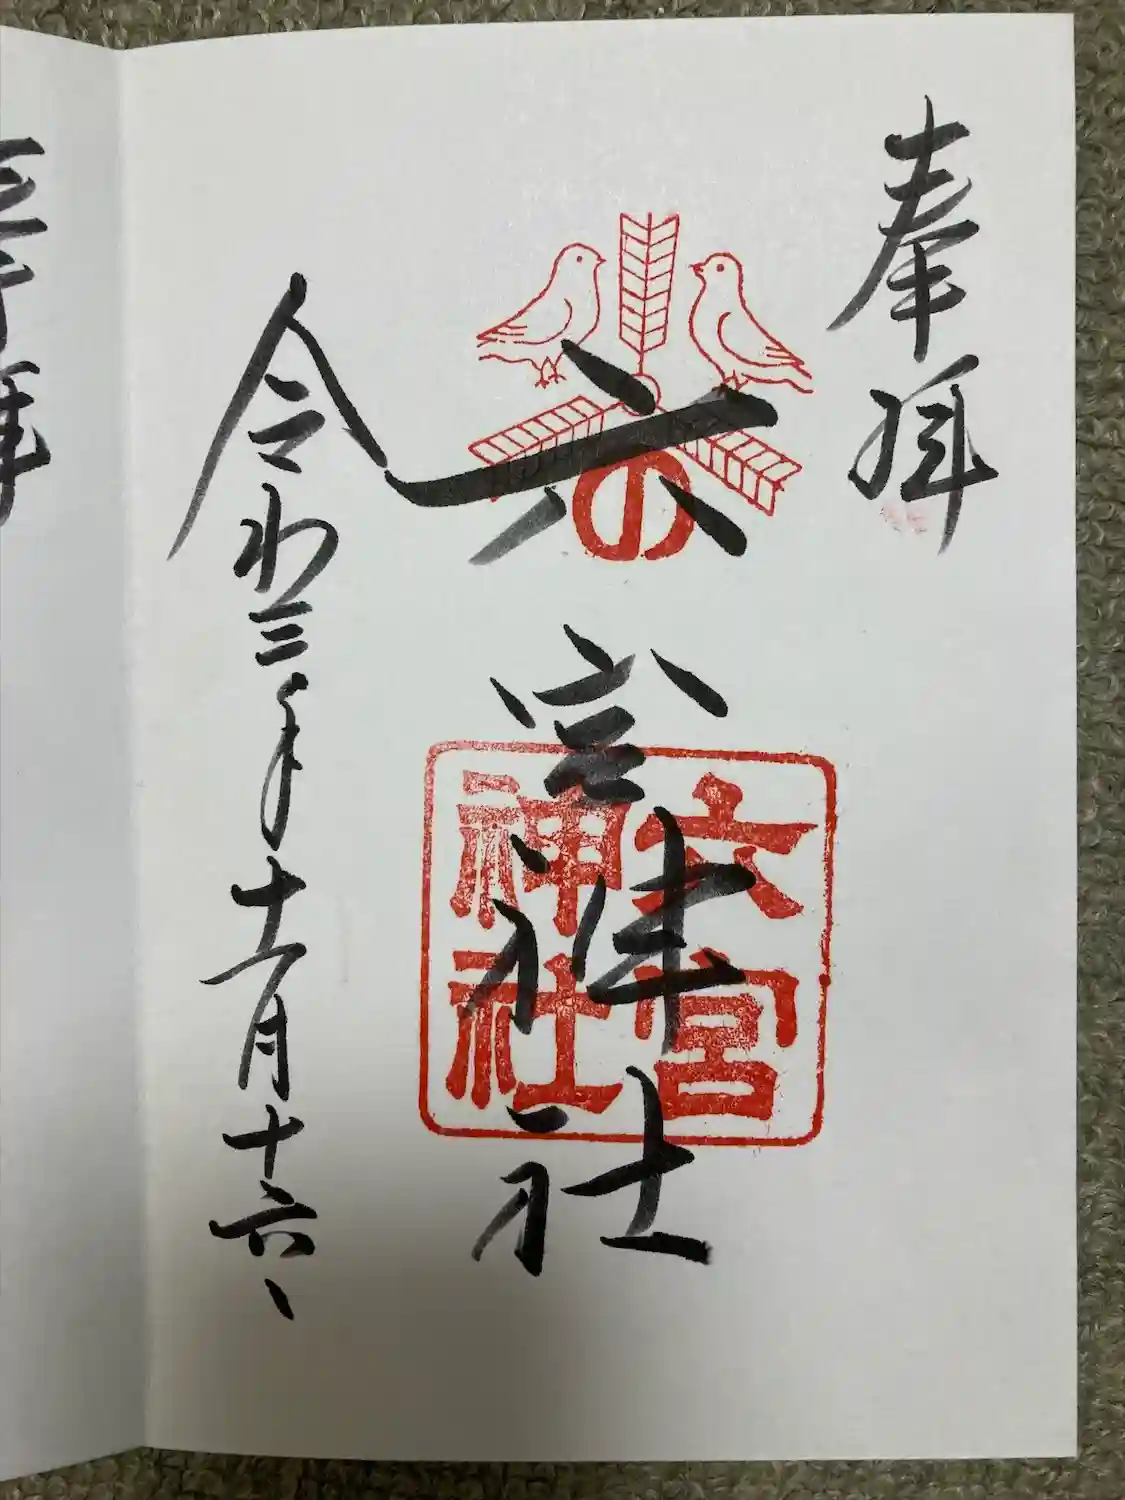 奉拝
六宮神社
の
六宮
神社
令和三年十一月十六日